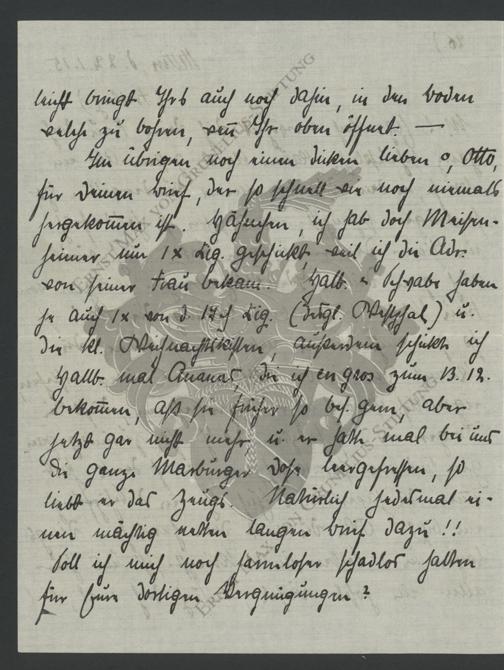 leicht bringt Ihrs auch noch dahin, in den Boden
welche zu bohren, wenn Ihr oben öffnet. —
Im übrigen noch einen dicken lieben o, Otto,
für Deinen Brief, der so schnell wie noch niemals
hergekommen ist. Hähnchen, ich hab doch Meisen-
heimer nur 1 x Zig. geschickt, weil ich die Adr.
von seiner Frau bekam. Hallb. + Schwabe haben
je auch 1 x von d. Zig. (dsgl. Westphal) u.
die kl. Weihnachtskisten, außerdem schickte ich
Hallb. mal Ananas, die ich en gros zum 13.12.
bekommen, aß sie früher so bes. gern, aber
jetzt gar nicht mehr, u. er hatte mal bei uns
die ganze Marburger Dose leergefressen, so
liebt er das Zeugs. Natürlich jedesmal ei-
nen mächtig netten langen Brief dazu!!
Soll ich mich noch harmloser schadlos halten
für Eure dortigen Vergnügungen?
ERNST UND VON GRUMBKOW-STIFTUNG